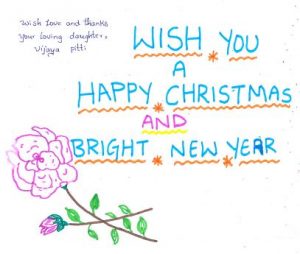 Wish Love and thanks
your loving daughter,
Vijaya Pitti
WISH YOU
A
HAPPY CHRISTMAS
AND
BRIGHT NEW YEAR